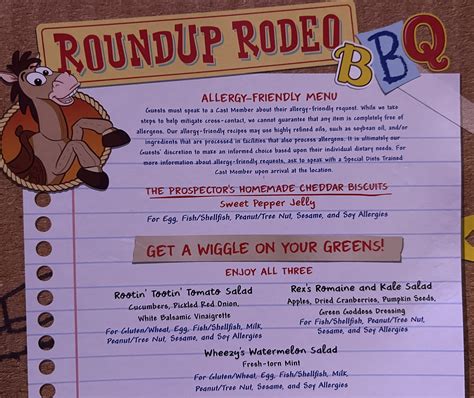 ROUNDUP RODEO BBQ
ALLERGY-FRIENDLY MENU
Guests must speak to a Cast Member about their allergy-friendly request. While we take
steps to help mitigate cross-contact, we cannot guarantee that any item is completely free of
allergens. Our allergy-friendly recipes may use highly refined oils, such as soybean oil, and/or
ingredients that are processed in facilities that also process allergens. It is ultimately our
Guests' discretion to make an informed choice based upon their individual dietary needs. For
more information about allergy-friendly requests, ask to speak with a Special Diets Trained
Cast Member upon arrival at the location.
THE PROSPECTOR'S HOMEMADE CHEDDAR BISCUITS
Sweet Pepper Jelly
For Egg, Fish/Shellfish, Peanut/Tree Nut, Sesame, and Soy Allergies
GET A WIGGLE ON YOUR GREENS!
ENJOY ALL THREE
Rootin' Tootin' Tomato Salad
Cucumbers, Pickled Red Onion,
White Balsamic Vinaigrette
For Gluten/Wheat, Egg, Fish/Shellfish, Milk,
Peanut/Tree Nut, Sesame, and Soy Allergies
Rex's Romaine and Kale Salad
Apples, Dried Cranberries, Pumpkin Seeds,
Green Goddess Dressing
For Fish/Shellfish, Peanut/Tree Nut,
Sesame, and Soy Allergies
Wheezy's Watermelon Salad
Fresh-torn Mint
For Gluten/Wheat, Egg, Fish/Shellfish, Milk,
Peanut/Tree Nut, Sesame, and Soy Allergies